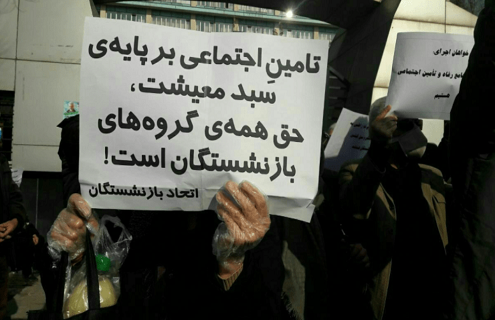 تامینِ اجتماعی بر پایه‌ی
سبد معیشت،
حق همه‌ی گروه‌های
بازنشستگان است!
اتحاد بازنشستگان
خواهان اجرای
جامع رفاه و تأمین اجتماعی
هستیم